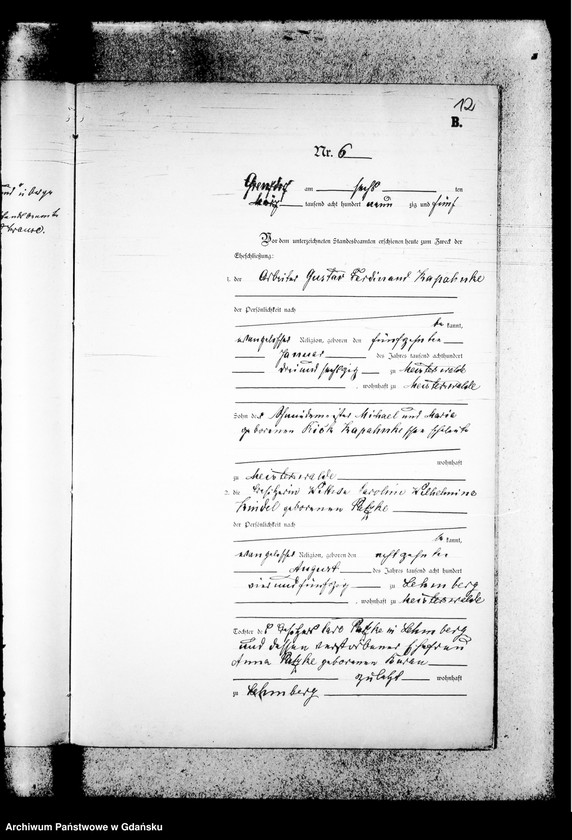 12
B.
Nr. 6
am sechs ten
März tausend acht hundert neun zig und fünf
Vor dem unterzeichneten Standesbeamten erschienen heute zum Zweck der
Eheschließung:
1. der Arbeiter Gustav Ferdinand Kapahnke
der Persönlichkeit nach
be kannt,
evangelischer Religion, geboren den fünfzehnten
Januar des Jahres tausend achthundert
dreiundsechszig zu Meisterswalde
, wohnhaft zu Meisterswalde
Sohn des Michael und Maria
geborenen Kapahnkeschen Eheleute
wohnhaft
zu Meisterswalde
2. die Besitzerin Wittwe Caroline Wilhelmine
geborenen Patzke
der Persönlichkeit nach
be kannt,
evangelischer Religion, geboren den achtzehnten
August des Jahres tausend acht hundert
vierundfünfzig zu Lehmberg
, wohnhaft zu Meisterswalde
Tochter des Besitzers Patzke in Lehmberg
und dessen verstorbener Ehefrau
Anna Patzke geborenen
zuletzt wohnhaft
zu Lehmberg
Archiwum Państwowe w Gdańsku